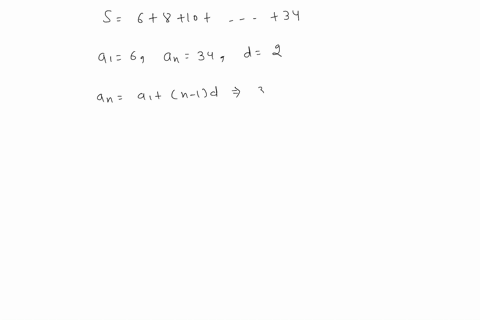 S = 6 + 8 + 10 + - - - - + 34
a₁ = 6, aₙ = 34, d = 2
aₙ = a₁ + (n-1)d ⇒